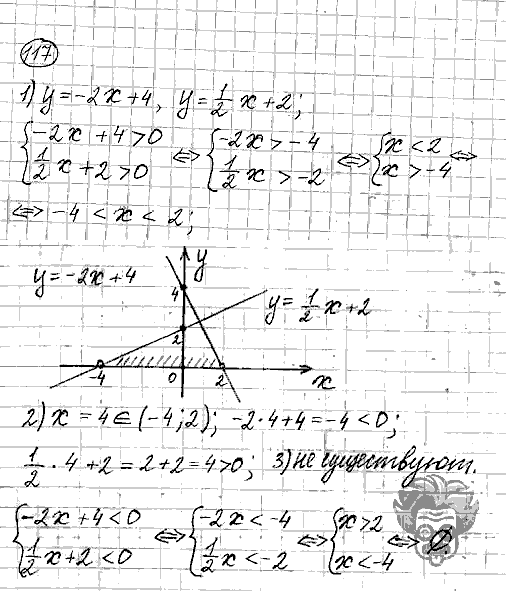 117
1) y = -2x + 4, y = 1/2 x + 2;
{ -2x + 4 > 0 ; 1/2 x + 2 > 0 ⇔ { -2x > -4 ; 1/2 x > -2 ⇔ { x < 2 ; x > -4 ⇔
⇔ -4 < x < 2;
y
y = -2x + 4
4
y = 1/2 x + 2
2
-4 0 2 x
2) x = 4 ∈ (-4; 2); -2·4 + 4 = -4 < 0;
1/2 · 4 + 2 = 2 + 2 = 4 > 0; 3) не существуют.
{ -2x + 4 < 0 ; 1/2 x + 2 < 0 ⇔ { -2x < -4 ; 1/2 x < -2 ⇔ { x > 2 ; x < -4 ⇔ ∅